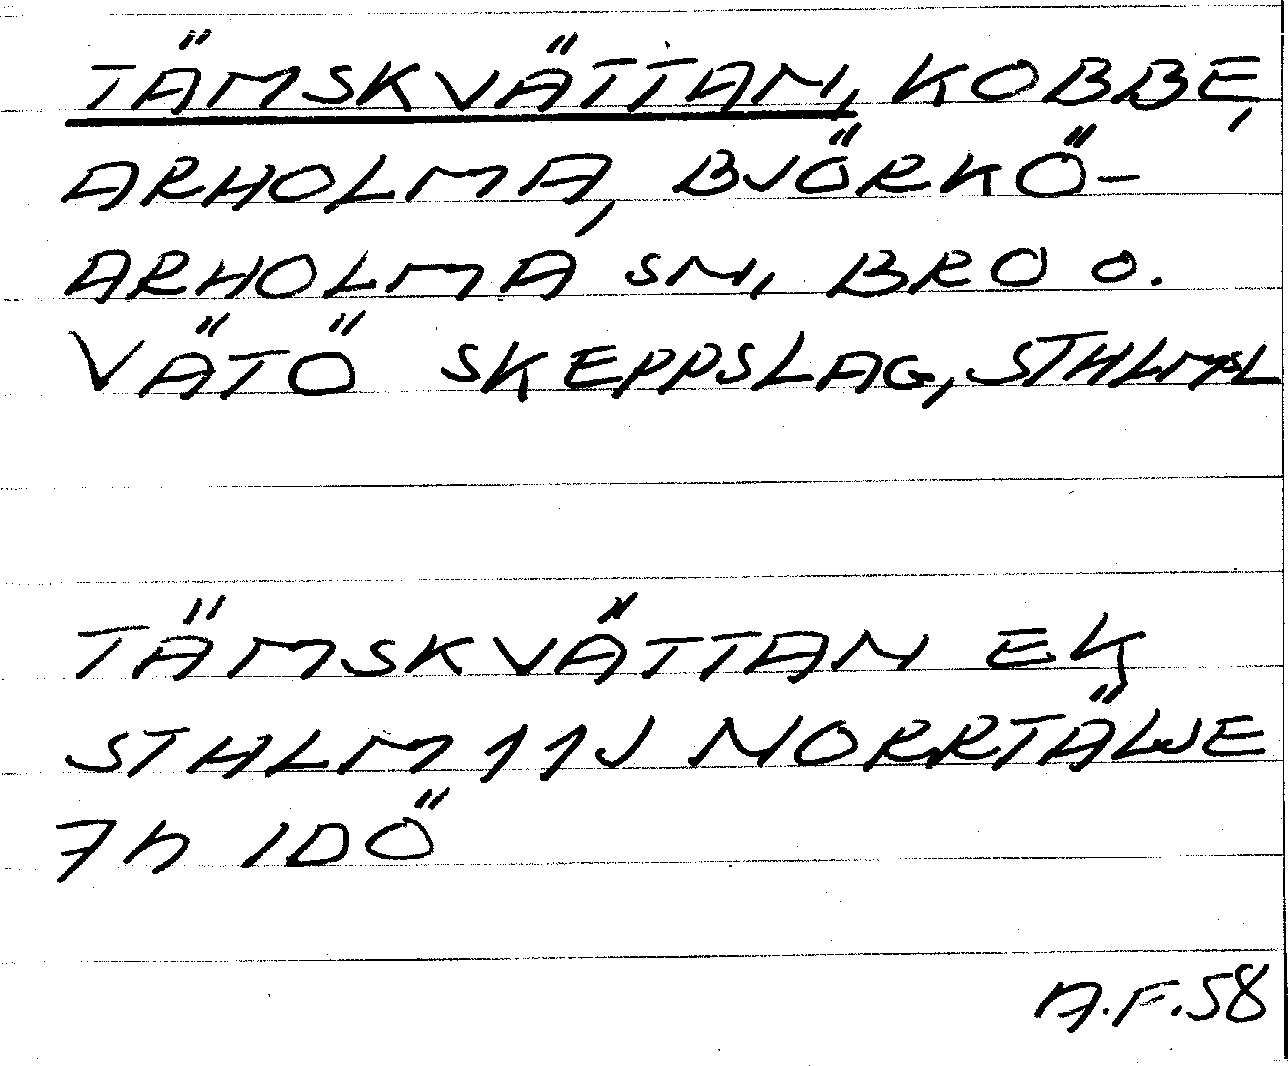 TÄMSKVÄTTAN, KOBBE,
ARHOLMA, BJÖRKÖ-
ARHOLMA SN, BRO O.
VÄTÖ SKEPPSLAG, STHLMSL
TÄMSKVÄTTAN EK
STHLM 11J NORRTÄLJE
7h IDÖ
A.F.58